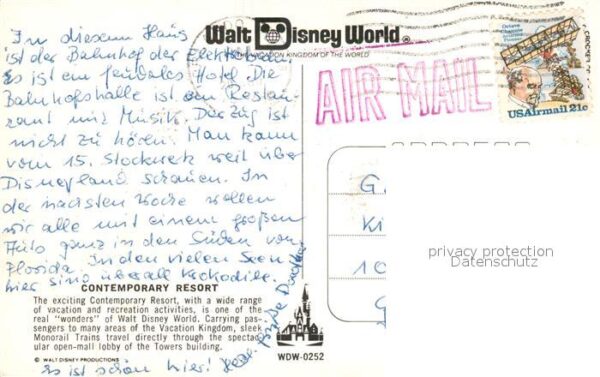 Walt Disney World
VACATION KINGDOM OF THE WORLD
In diesem Haus
ist der Bahnhof der
Es ist ein feudales Hotel. Die
Bahnhofshalle ist ein Restau-
rant mit Musik. Der Zug ist
nicht zu hören. Man kann
vom 15. Stockwerk weit über
Disneyland schauen. In
der nächsten Woche wollen
wir alle mit einem großen
Auto ganz in den Süden von
Florida. In den vielen Seen
hier sind überall Krokodile.
Es ist schön hier! Herzl. Grüße Dorothea
AIR MAIL
Octave
Chanute
Aviation
Pioneer
USAirmail 21c
ADDRESS
G
Ki
10
privacy protection
Datenschutz
CONTEMPORARY RESORT
The exciting Contemporary Resort, with a wide range
of vacation and recreation activities, is one of the
real "wonders" of Walt Disney World. Carrying pas-
sengers to many areas of the Vacation Kingdom, sleek
Monorail Trains travel directly through the spectac-
ular open-mall lobby of the Towers building.
© WALT DISNEY PRODUCTIONS
WDW-0252